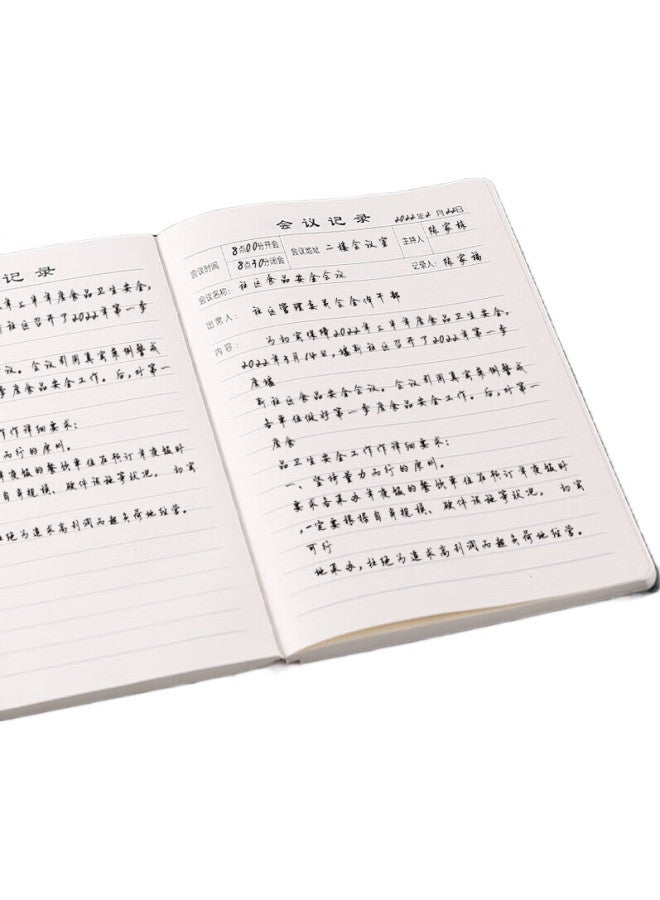 记录
年上半年度食品卫生安全,
新社区召开了2022年第一季
议。会议引用真实案例警戒
季度食品安全工作。后,对第一
作作详细要求:
品行的原则。
年夜饭的餐饮单位在预订年夜饭时
自身规模、硬件设施等状况,切实
杜绝为追求高利润而超负荷地经营。
会议记录 2022年2月22日
会议时间 8点00分开会 会议地址 二楼会议室 主持人 张家栋
8点30分闭会 记录人:张家福
会议名称: 社区食品安全会议
出席人: 社区管理委员会全体干部
内容: 为切实保障2022年上半年度食品卫生安全,
2022年3月14日,塘新社区召开了2022年第一季
度塘
新社区食品安全会议。会议引用真实案例警戒
各单位做好第一季度食品安全工作。后,对第一
度食
品卫生安全工作作详细要求:
一、坚持量力品行的原则。
要求各承办年夜饭的餐饮单位在预订年夜饭时
,一定要根据自身规模、硬件设施等状况, 切实
可行
地承办,杜绝为追求高利润而超负荷地经营。